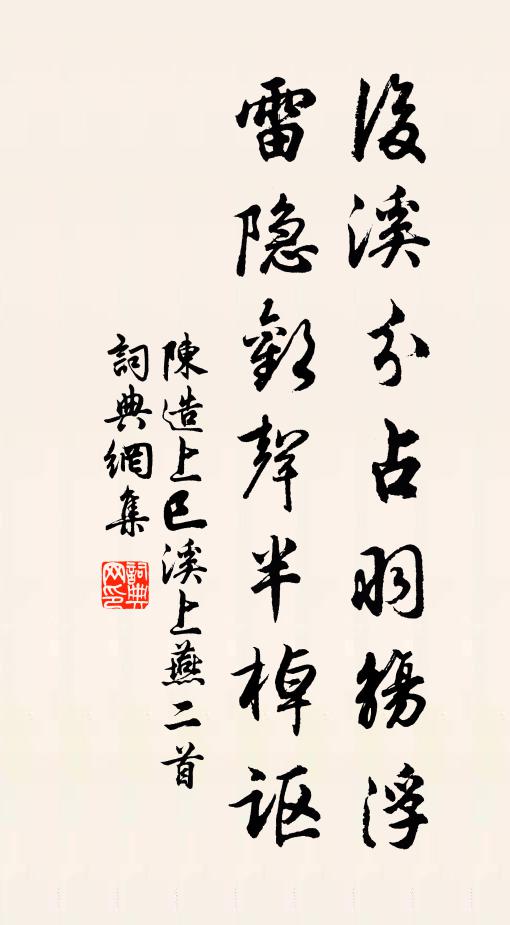 後溪分占羽觴浮
雷隐歡聲半棹讴
陳造上巳溪上燕二首
詞典網集
詞典
网印